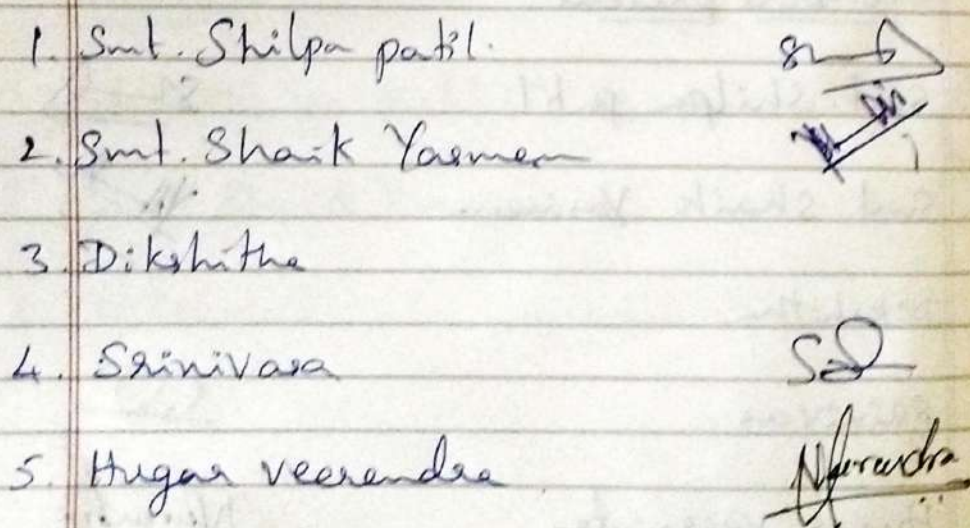 1. Smt. Shilpa patil.
2. Smt. Shaik Yasmeen
3. Dikshitha
4. Srinivasa
5. Hugar veerendra